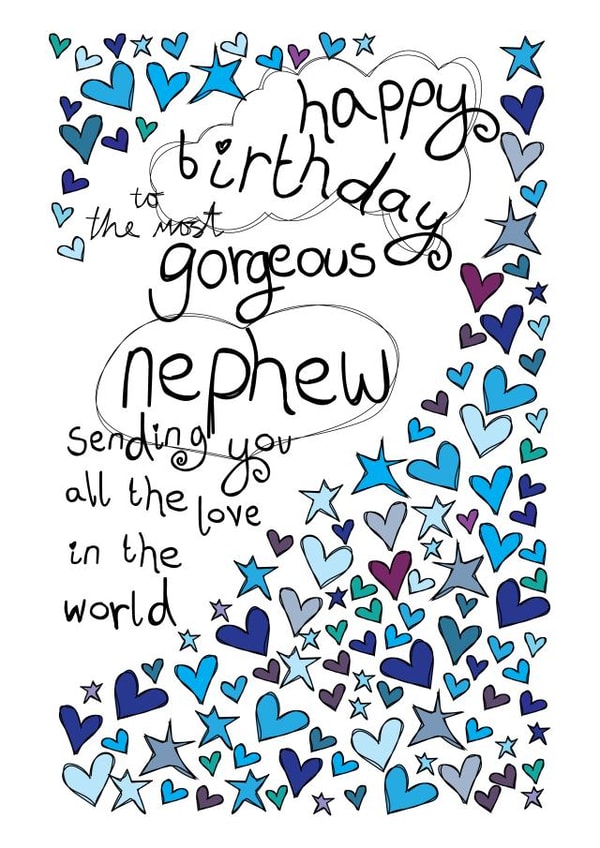 happy
birthday
to
the most
gorgeous
nephew
sending you
all the love
in the
world